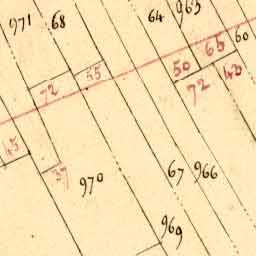 971 68 64 965
60
65
55 50 40
72 72
45
37 970 67 966
969